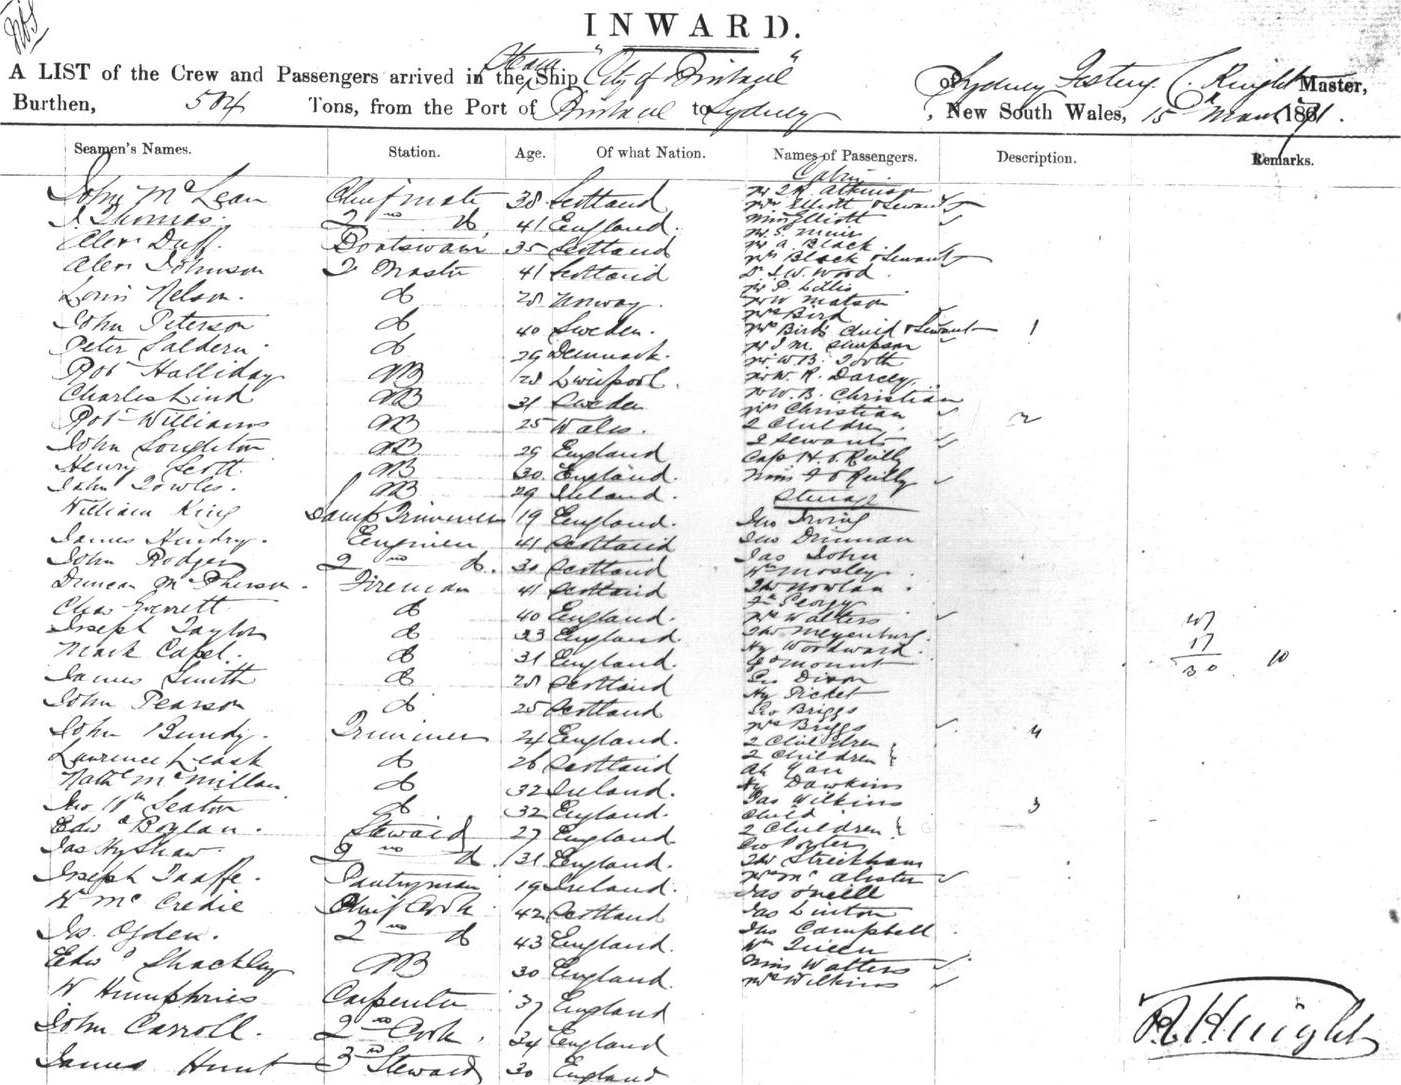 INWARD.
A LIST of the Crew and Passengers arrived in the Steam Ship "City of Brisbane" of Sydney C. Knight Master,
Burthen, 504 Tons, from the Port of Brisbane to Sydney, New South Wales, 15th March 1871.
Seamen's Names. Station. Age. Of what Nation. Names of Passengers. Description. Remarks.
Cabin
John McLean Chief mate 38 Scotland
J. Thomas 2nd do 41 England
Alexr Duff Boatswain 35 Scotland
Alexr Johnson 41 Scotland
Louis Nelson do 28 Norway
John Peterson do 40 Sweden
Peter Saldern do 29 Denmark
Robt Halliday AB 28 Liverpool
Charles Lind AB 31 Sweden
Robt Williams AB 25 Wales
John AB 29 England
Henry Scott AB 30 England
John Towles AB 29 Ireland
William King Lamp Trimmer 19 England
James Hendry Engineer 41 Scotland
John Rodger 2nd do 30 Scotland
Duncan McPherson Fireman 41 Scotland
Chas Everett do 40 England
Joseph Taylor do 23 England
Mark Capel do 31 England
James Smith do 28 Scotland
John Pearson do 25 Scotland
John Bundy Trimmer 24 England
Lawrence Leask do 26 Scotland
Nathl McMillan do 32 Ireland
Jno Wm Seaton do 32 England
Edwd Boylan Steward 27 England
Jas Hy Shaw 2nd do 31 England
Joseph Taaffe Pantryman 19 Ireland
W McCredie Chief Cook 42 Scotland
Js. Ogden 2nd do 43 England
Edwd Shackley AB 30 England
W Humphries Carpenter 37 England
John Carroll 2nd Cook 34 England
James Hunt 3rd Steward 30 England
Mr J R Atkinson
Mrs Elliott & Servant
Miss Elliott
Mr S. Muir
Mr A. Black
Mrs Black & Servant
Dr J. W. Wood
Mr P. Lillis
Mr W Matson
Mr Bird
Mrs Bird child & Servant 1
Mr J M Simpson
Mr W. B. Tooth
Mr W. R. Darcey
Mr W. B. Christian
Mrs Christian
2 Children 2
2 Servants
Capt H. O'Reilly
Miss F O'Reilly
Steerage
Jno Irving
Jno Drinnan
Jas John
Wm Mosley
Thos Nowlan
Mrs Walters
Thos Meyenburg
Hy Woodward
Go Mount
Geo Dixon
Hy Picket
Geo Briggs
Mrs Briggs
2 Children 4
2 Children
Ah Yan
Hy Dawkins
Jas Wilkins
Child 3
2 Children
Geo Fowler
Thos Strickham
Mrs McAlister
Jas O'Neill
Jas Linton
Jno Campbell
Wm Queen
Miss Walters
Mrs Wilkins
17
30 10
R. Knight